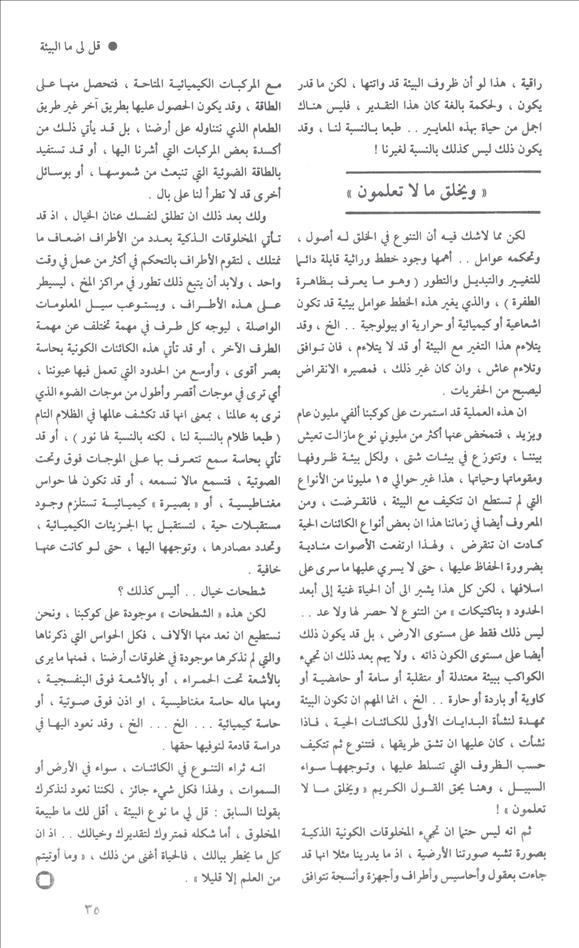 ● قل لى ما البيئة
راقية ، هذا لو أن ظروف البيئة قد واتتها ، لكن ما قدر
يكون ، ولحكمة بالغة كان هذا التقدير ، فليس هناك
اجمل من حياة بهذه المعايير .. طبعا بالنسبة لنا ، وقد
يكون ذلك ليس كذلك بالنسبة لغيرنا !
« ويخلق ما لا تعلمون »
لكن مما لاشك فيه أن التنوع في الخلق له أصول ،
وتحكمه عوامل .. أهمها وجود خطط وراثية قابلة دائما
للتغيير والتبديل والتطور ( وهو ما يعرف بظاهرة
الطفرة ) ، والذي يغير هذه الخطط عوامل بيئية قد تكون
اشعاعية أو كيميائية أو حرارية او بيولوجية .. الخ ، وقد
يتلاءم هذا التغير مع البيئة أو قد لا يتلاءم ، فان توافق
وتلاءم عاش ، وان كان غير ذلك ، فمصيره الانقراض
ليصبح من الحفريات .
ان هذه العملية قد استمرت على كوكبنا ألفي مليون عام
ويزيد ، فتمخض عنها أكثر من مليوني نوع مازالت تعيش
بيننا ، وتتوزع في بيئات شتى ، ولكل بيئة ظروفها
ومقوماتها وحياتها ، هذا غير حوالي ١٥ مليونا من الأنواع
التي لم تستطع ان تتكيف مع البيئة ، فانقرضت ، ومن
المعروف أيضا في زماننا هذا ان بعض أنواع الكائنات الحية
كادت ان تنقرض ، ولهذا ارتفعت الأصوات منادية
بضرورة الحفاظ عليها ، حتى لا يسري عليها ما سرى على
اسلافها ، لكن كل هذا يشير الى أن الحياة غنية إلى أبعد
الحدود « بتاكتيكات » من التنوع لا حصر لها ولا عد ..
ليس ذلك فقط على مستوى الارض ، بل قد يكون ذلك
أيضا على مستوى الكون ذاته ، ولا يهم بعد ذلك ان تجيء
الكواكب ببيئة معتدلة أو متقلبة أو سامة أو حامضية أو
كاوية أو باردة أو حارة .. الخ ، انما المهم ان تكون البيئة
ممهدة لنشأة البدايات الأولى للكائنات الحية ، فاذا
نشأت ، كان عليها ان تشق طريقها ، فتتنوع ثم تتكيف
حسب الظروف التي تتسلط عليها ، وتوجهها سواء
السبيل ، وهنا يحق القول الكريم « ويخلق ما لا
تعلمون » !
ثم انه ليس حتما ان تجيء المخلوقات الكونية الذكية
بصورة تشبه صورتنا الأرضية ، اذ ما يدرينا مثلا انها قد
جاءت بعقول وأحاسيس وأطراف وأجهزة وأنسجة تتوافق
مع المركبات الكيميائية المتاحة ، فتحصل منها على
الطاقة ، وقد يكون الحصول عليها بطريق آخر غير طريق
الطعام الذي نتناوله على أرضنا ، بل قد يأتي ذلك من
أكسدة بعض المركبات التي أشرنا اليها ، أو قد تستفيد
بالطاقة الضوئية التي تنبعث من شموسها ، أو بوسائل
أخرى قد لا تطرأ لنا على بال .
ولك بعد ذلك ان تطلق لنفسك عنان الخيال ، اذ قد
تأتي المخلوقات الذكية بعدد من الأطراف اضعاف ما
نمتلك ، لتقوم الأطراف بالتحكم في أكثر من عمل في وقت
واحد ، ولابد أن يتبع ذلك تطور في مراكز المخ ، ليسيطر
على هذه الأطراف ، ويستوعب سيل المعلومات
الواصلة ، ليوجه كل طرف في مهمة تختلف عن مهمة
الطرف الآخر ، أو قد تأتي هذه الكائنات الكونية بحاسة
بصر أقوى ، وأوسع من الحدود التي تعمل فيها عيوننا ،
أي ترى في موجات أقصر وأطول من موجات الضوء الذي
نرى به عالمنا ، بمعنى انها قد تكشف عالمها في الظلام التام
( طبعا ظلام بالنسبة لنا ، لكنه بالنسبة لها نور ) ، أو قد
تأتي بحاسة سمع تتعرف بها على الموجات فوق وتحت
الصوتية ، فتسمع مالا نسمعه ، أو قد تكون لها حواس
مغناطيسية ، أو « بصيرة » كيميائية تستلزم وجود
مستقبلات حية ، لتستقبل بها الجزيئات الكيميائية ،
وتحدد مصادرها ، وتوجهها اليها ، حتى لو كانت عنها
خافية .
شطحات خيال .. أليس كذلك ؟
لكن هذه « الشطحات » موجودة على كوكبنا ، ونحن
نستطيع ان نعد منها الآلاف ، فكل الحواس التي ذكرناها
والتي لم نذكرها موجودة في مخلوقات أرضنا ، فمنها ما يرى
بالأشعة تحت الحمراء ، أو بالأشعة فوق البنفسجية ،
ومنها ماله حاسة مغناطيسية ، او اذن فوق صوتية ، أو
حاسة كيميائية ... الخ ... الخ ، وقد نعود اليها في
دراسة قادمة لنوفيها حقها .
انه ثراء التنوع في الكائنات ، سواء في الأرض أو
السموات ، ولهذا فكل شيء جائز ، لكننا نعود لنذكرك
بقولنا السابق : قل لي ما نوع البيئة ، أقل لك ما طبيعة
المخلوق ، أما شكله فمتروك لتقديرك وخيالك .. اذ ان
كل ما يخطر ببالك ، فالحياة أغنى من ذلك ، « وما أوتيتم
من العلم إلا قليلا » .
٣٥